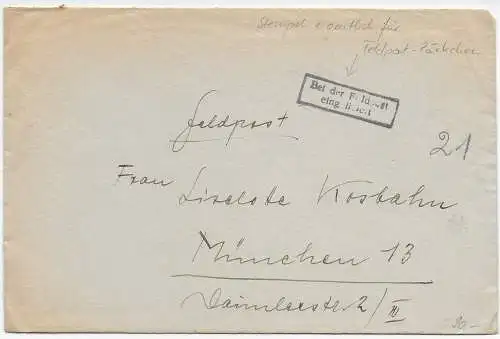 Stempel eigentlich für
Feldpost-Päckchen
Bei der Feldpost
eingeliefert
Feldpost
21
Frau Liselote Kosbahn
München 13
Daimlerstr. 2/III
20.-